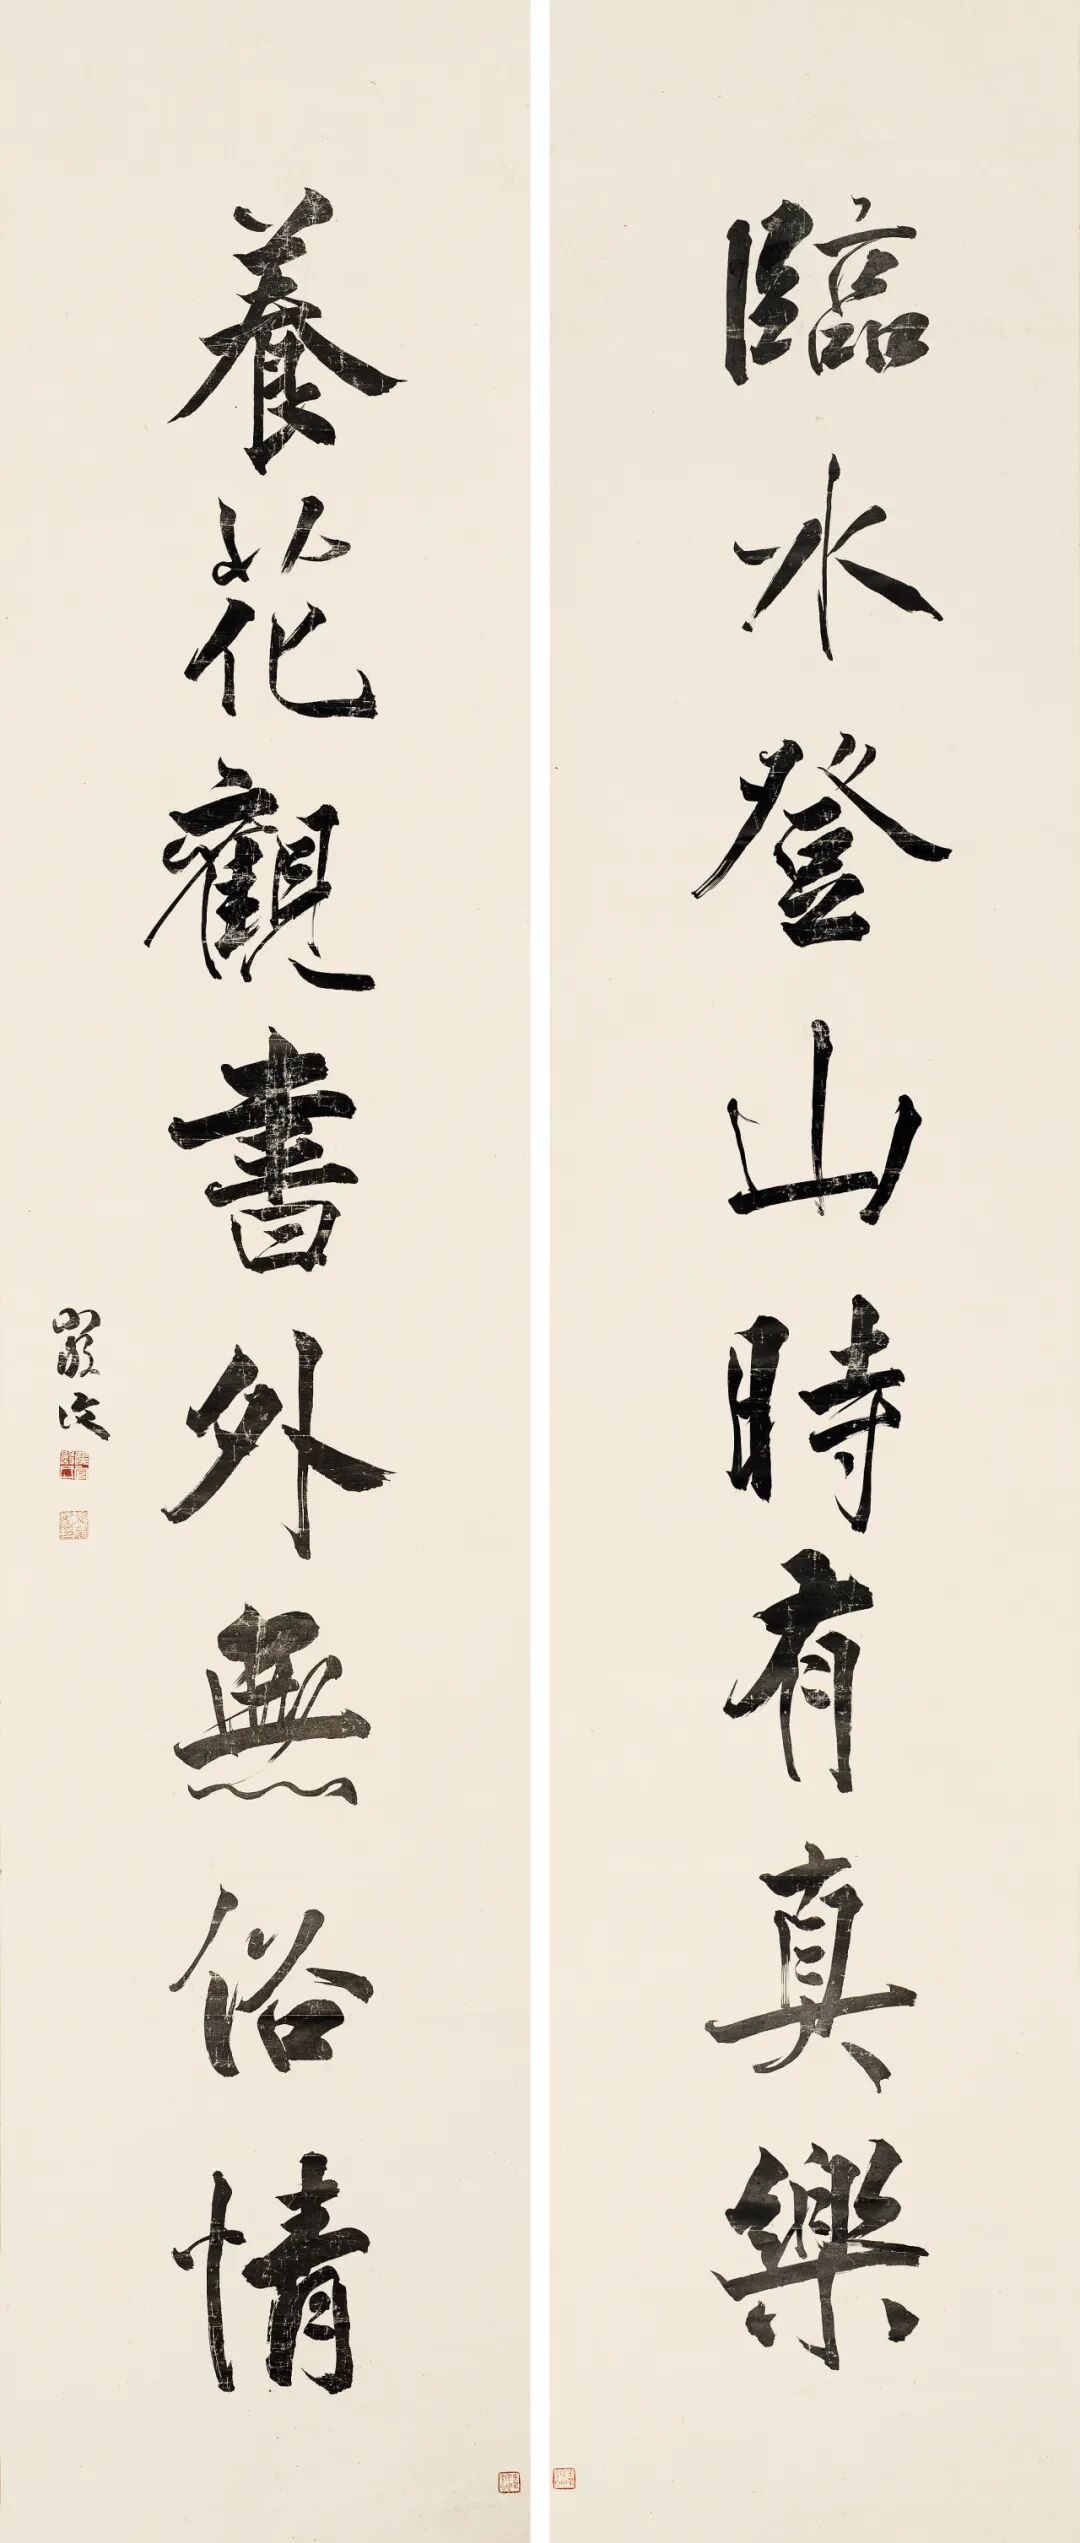 臨水登山時有真樂
養花觀書外無俗情
嚴復